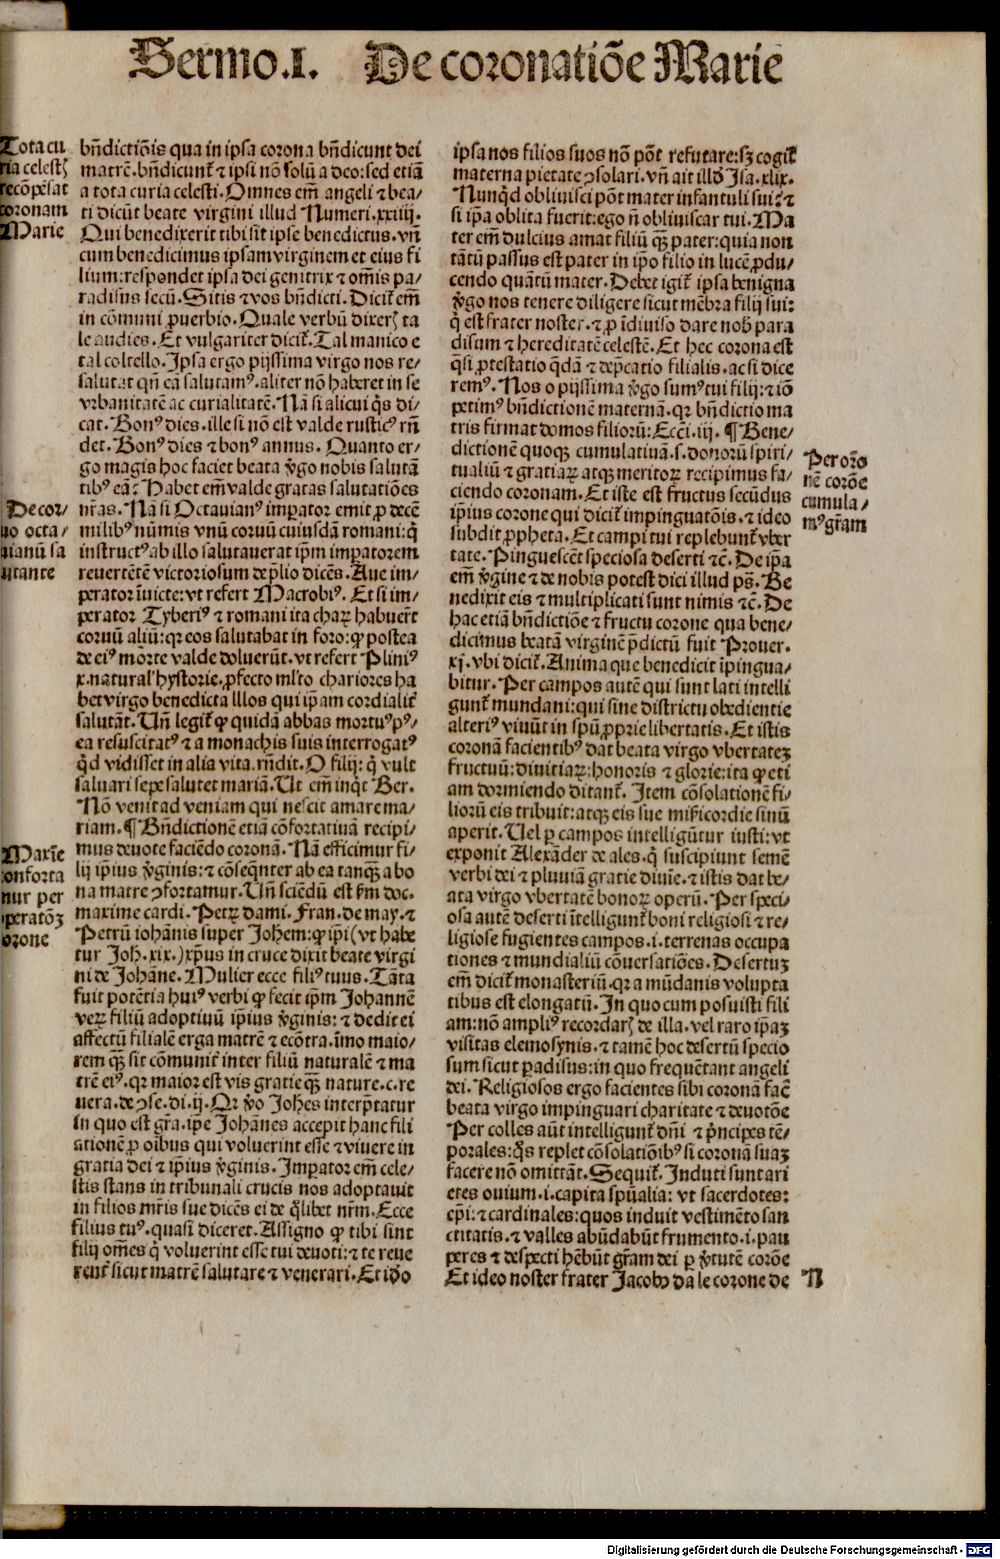 Sermo.I. De coronatiõe Marie
Tota cu
ria celestꝭ
recõpẽsat
coronam
Marie
bñdictiõis qua in ipsa corona bñdicunt dei
matrẽ. bñdicunt᷑ ⁊ ipsi nõ solũ a deo: sed etiã
a tota curia celesti. Omnes em̃ angeli ⁊ bea-
ti dicũt beate virgini illud Numeri. xxiiij.
Qui benedixerit tibi sit ipse benedictus. vñ
cum benedicimus ipsam virginem et eius fi
lium: respondet ipsa dei genitrix ⁊ om̃is pa-
radisus secũ. Sitis ⁊ vos bñdicti. Dicit᷑ em̃
in cõmuni ꝓuerbio. Quale verbũ dixerꝭ ta
le audies. Et vulgariter dicit᷑. Tal manico e
tal coltello. Ipsa ergo pijssima virgo nos re-
salutat qñ eã salutamꝰ. aliter nõ haberet in se
vrbanitatẽ ac curialitatẽ. Nã si alicui q̇s di-
cat. Bonꝰ dies. ille si nõ est valde rusticꝰ rñ
det. Bonꝰ dies ⁊ bonꝰ annus. Quanto er-
go magis hoc faciet beata v̓go nobis salutã
tibꝰ eã? Habet em̃ valde gratas salutatiões
nr̃as. Nã si Octauianꝰ imꝑator emit ꝓ decẽ
milibꝰ nũmis vnũ coruũ cuiusdã romani: q̇
instructꝰ ab illo salutauerat ip̃m imꝑatorem
reuertẽtẽ victoriosum de p̃lio dicẽs. Aue im-
perator inuicte: vt refert Macrobiꝰ. Et si im-
perator Tyberiꝰ ⁊ romani ita charꝝ habuer̃t
coruũ aliũ: qꝛ eos salutabat in foro: ꝙ postea
de eiꝰ morte valde doluerũt. vt refert Pliniꝰ
x. natural' hystorie. ꝓfecto ml'to chariores ha
bet virgo benedicta illos qui ip̃am cordialit᷑
salutãt. Uñ legit᷑ ꝙ quidã abbas mortuꝰ pꝰ-
ea resuscitatꝰ ⁊ a monachis suis interrogatꝰ
q̇d vidisset in alia vita. rñdit. O filij: q̇ vult
saluari sepe salutet mariã. Ut em̃ inq̇t Ber.
Nõ venit ad veniam qui nescit amare ma-
riam. ¶ Bñdictionẽ etiã cõfortatiuã recipi-
mus deuote faciẽdo coronã. Nã efficimur fi-
lij ip̃ius v̓ginis: ⁊ cõseq̃nter ab ea tanqꝫ a bo
na matre ꝯfortamur. Uñ sciẽdũ est ẜm doc.
maxime cardi. Petrꝝ dami. Fran. de may. ⁊
Petrũ iohãnis super Johem: ꝙ ip̃i (vt habe
tur Joh. xix.) xp̃us in cruce dixit beate virgi
ni de Johãne. Mulier ecce filiꝰ tuus. Tãta
fuit potẽtia huiꝰ verbi ꝙ fecit ip̃m Johannẽ
verꝝ filiũ adoptiuũ ip̃ius v̓ginis: ⁊ dedit ei
affectũ filialẽ erga matrẽ ⁊ ecõtra. imo maio-
rem qꝫ sit cõmunit᷑ inter filiũ naturalẽ ⁊ ma
trẽ eiꝰ. qꝛ maior est vis gratie qꝫ nature. c. re
uera. de ꝯse. di. ij. Qꝛ v̓o Joh̃es interp̃tatur
in quo est gr̃a. ip̃e Johãnes accepit hanc fili
ationẽ ꝓ oĩbus qui voluerint esse ⁊ viuere in
gratia dei ⁊ ip̃ius v̓ginis. Imꝑator em̃ cele-
stis stans in tribunali crucis nos adoptauit
in filios mr̃is sue dicẽs ei de q̇libet nr̃m. Ecce
filius tuꝰ. quasi diceret. Assigno ꝙ tibi sint
filij om̃es q̇ voluerint esse tui deuoti: ⁊ te reue
reuñt sicut matrẽ salutare ⁊ venerari. Et id̓o
De cor-
uo octa-
uianũ sa
lutante
Marie
onforta
mur per
operatõꝫ
corone
ipsa nos filios suos nõ põt refutare: sꝫ cogit᷑
materna pietate ꝯsolari. vñ ait illd̓ Isa. xlix.
Nunq̇d obliuisci põt mater infantuli sui? ⁊
si ip̃a oblita fuerit: ego ñ obliuiscar tui. Ma
ter em̃ dulcius amat filiũ qꝫ pater: quia non
tãtũ passus est pater in ip̃o filio in lucẽ ꝓdu-
cendo quãtũ mater. Debet igit᷑ ipsa benigna
v̓go nos tenere diligere sicut mẽbra filij sui:
q̇ est frater noster. ⁊ ꝓ ĩdiuiso dare nob̓ para
disum ⁊ hereditatẽ celestẽ. Et hec corona est
q̃si ꝓtestatio q̃dã ⁊ dep̃catio filialis. ac si dice
remꝰ. Nos o pijssima v̓go sumꝰ tui filij: ⁊ iõ
petimꝰ bñdictionẽ maternã. qꝛ bñdictio ma
tris firmat domos filiorũ: Ecc̃i. iij. ¶ Bene-
dictionẽ quoqꝫ cumulatiuã. s. donorũ spiri-
tualiũ ⁊ gratiarꝝ atqꝫ meritorꝝ recipimus fa-
ciendo coronam. Et iste est fructus secũdus
ip̃ius corone qui dicit᷑ impinguatõis. ⁊ ideo
subdit ꝓpheta. Et campi tui replebunt᷑ vber
tate. Pinguescẽt speciosa deserti ⁊c̃. De ip̃a
em̃ v̓gine ⁊ de nobis potest dici illud ps̃. Be
nedixit eis ⁊ multiplicati sunt nimis ⁊c̃. De
hac etiã bñdictiõe ⁊ fructu corone qua bene-
dicimus beatã virginẽ p̃dictũ fuit Prouer.
xj. vbi dicit᷑. Anima que benedicit ĩpingua-
bitur. Per campos autẽ qui sunt lati intelli
gunt᷑ mundani: qui sine districtu obedientie
alteriꝰ viuũt in spũ ꝓprie libertatis. Et istis
coronã facientibꝰ dat beata virgo vbertatẽ
fructuũ: diuitiarꝝ: honoris ⁊ glorie: ita ꝙ eti
am dormiendo ditant᷑. Item cõsolationẽ fi-
liorũ eis tribuit: atqꝫ eis sue mis̃icordie sinũ
aperit. Uel ꝑ campos intelligũtur iusti: vt
exponit Alexãder de ales. q̇ suscipiunt semẽ
verbi dei ⁊ pluuiã gratie diuie. ⁊ istis dat be-
ata virgo vbertatẽ bonorꝝ operũ. Per speci-
osa autẽ deserti ĩtelligunt᷑ boni religiosi ⁊ re-
ligiose fugientes campos. i. terrenas occupa
tiones ⁊ mundialiũ cõuersatiões. Desertuꝫ
em̃ dicit᷑ monasteriũ. qꝛ a mũdanis volupta
tibus est elongatũ. In quo cum posuisti fili
am: nõ ampliꝰ recordarꝭ de illa. vel raro ip̃aꝫ
visitas elemosynis. ⁊ tamẽ hoc desertũ specio
sum sicut ꝑadisus: in quo frequẽtant angeli
dei. Religiosos ergo facientes sibi coronã facẽ
beata virgo impinguari charitate ⁊ deuotõe
Per colles aũt intelligunt᷑ dñi ⁊ p̃ncipes tẽ-
porales: q̃s replet cõsolatiõibꝰ si coronã suaꝫ
facere nõ omittãt. Sequit᷑. Induti sunt ari
etes ouium. i. capita spũalia: vt sacerdotes:
ep̃i: ⁊ cardinales: quos induit vestimẽto san
ctitatis. ⁊ valles abũdabũt frumento. i. pau
peres ⁊ despecti hẽbũt gr̃am dei ꝑ v̓tutẽ corõe
Et ideo noster frater Jacobꝰ da le corone de
Per orõꝫ
nẽ corõe
cumula-
mꝰ gr̃am
N
Digitalisierung gefördert durch die Deutsche Forschungsgemeinschaft - DFG